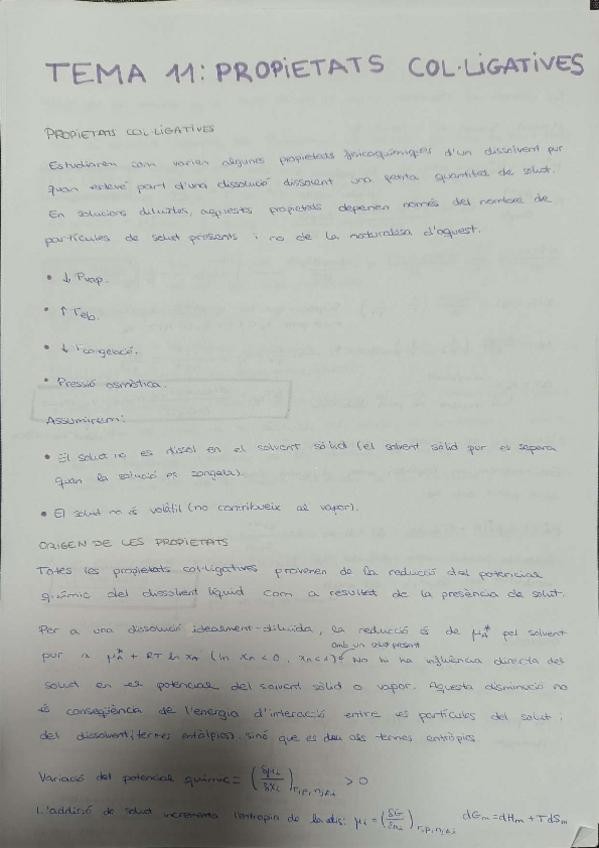 TEMA 11: PROPIETATS COL·LIGATIVES
PROPIETATS COL·LIGATIVES
Estudiarem com varien algunes propietats fisicoquímiques d'un dissolvent pur
quan esdevé part d'una dissolució dissolent una petita quantitat de solut.
En solucions diluïdes, aquestes propietats depenen només del nombre de
partícules de solut presents i no de la naturalesa d'aquest.
• ↓ Pvap.
• ↑ Teb.
• ↓ Tcongelació.
• Pressió osmòtica.
Assumirem:
• El solut no es dissol en el solvent sòlid (el solvent sòlid pur es separa
quan la solució es congela).
• El solut no és volàtil (no contribueix al vapor).
ORIGEN DE LES PROPIETATS
Totes les propietats col·ligatives provenen de la reducció del potencial
químic del dissolvent líquid com a resultat de la presència de solut.
Per a una dissolució idealment-diluïda, la reducció és de μA* pel solvent
amb un solut present
pur a μA* + RT ln xA (ln xA < 0, xA < 1) No hi ha influència directa del
solut en el potencial del solvent sòlid o vapor. Aquesta disminució no
és conseqüència de l'energia d'interacció entre les partícules del solut i
del dissolvent (termes entàlpics), sinó que es deu als termes entròpics
Variació del potencial químic = (δμi/δxi)T,P,nj≠i > 0
L'addició de solut incrementa l'entropia de la dis: μi = (δG/δni)T,P,nj≠i dGm = dHm + TdSm